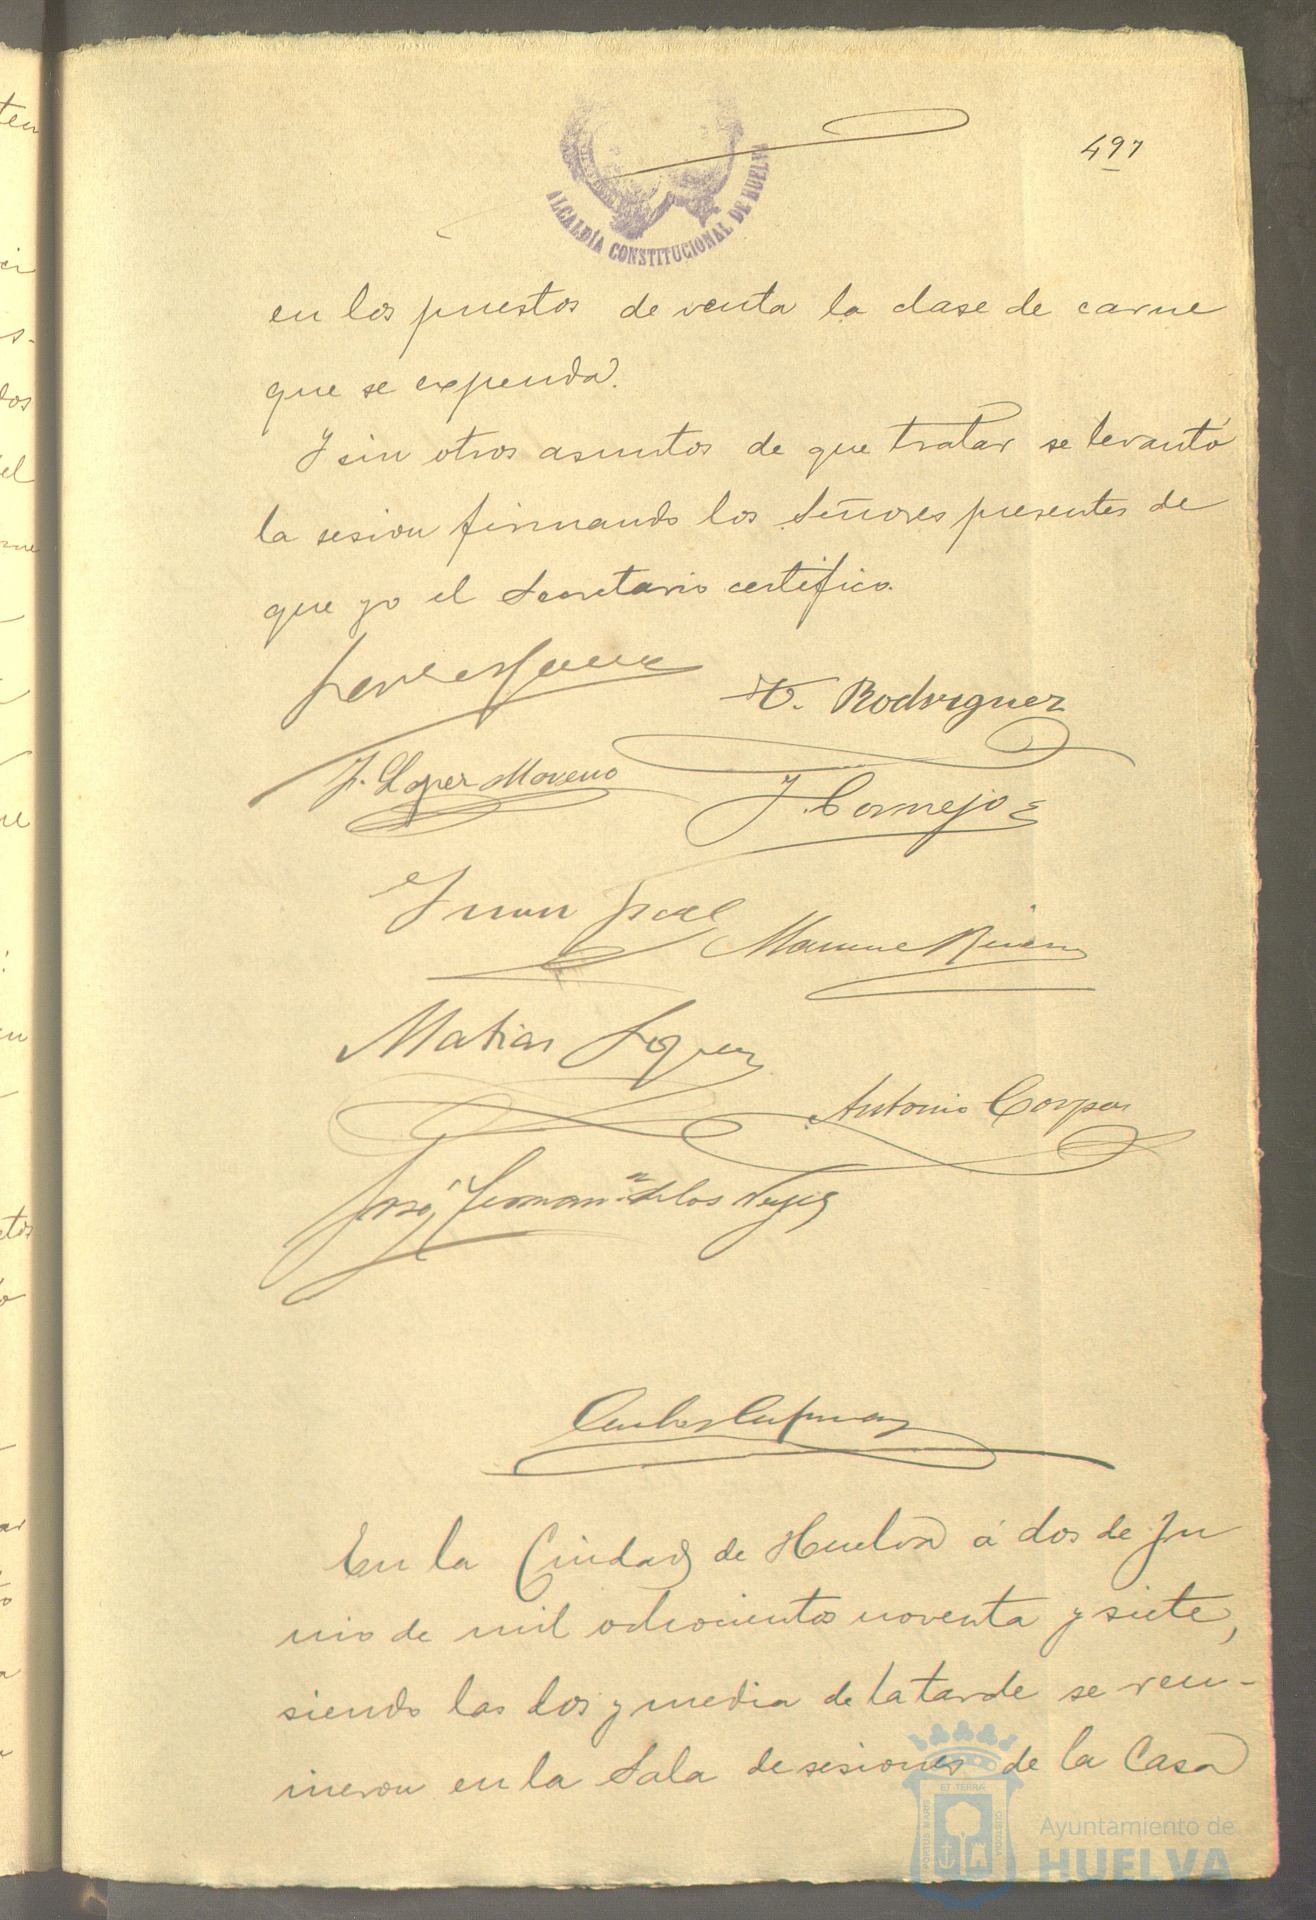 497
ALCALDÍA CONSTITUCIONAL DE HUELVA
en los puestos de venta la clase de carne
que se expenda.
Y sin otros asuntos de que tratar se levantó
la sesion firmando los Señores presentes de
que yo el Secretario certifico.
V. Rodriguez
J. Lopez Moreno
J. Cornejo
Juan
Manuel Rivera
Matias
Antonio Corpas
José Fernan.n de los Reyes
En la Ciudad de Huelva á dos de Ju
nio de mil ochocientos noventa y siete,
siendo las dos y media de la tarde se reu-
nieron en la Sala de sesiones de la Casa
PORTUS MARIS ET TERRÆ CUSTODIA
Ayuntamiento de
HUELVA